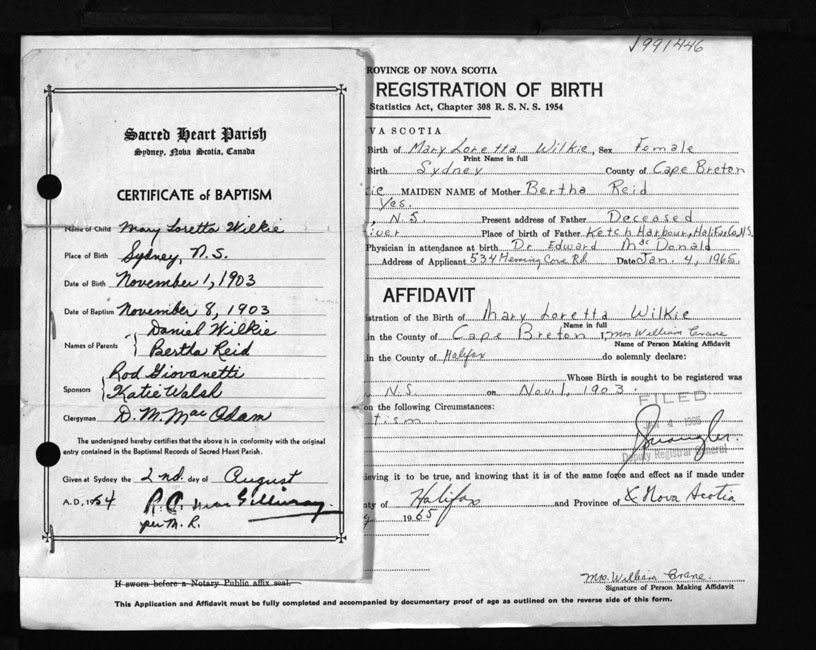 J991446
Sacred Heart Parish
Sydney, Nova Scotia, Canada
CERTIFICATE of BAPTISM
Name of Child Mary Loretta Wilkie
Place of Birth Sydney, N.S.
Date of Birth November 1, 1903
Date of Baptism November 8, 1903
Names of Parents Daniel Wilkie
Bertha Reid
Sponsors Rod Giovanetti
Katie Walsh
Clergyman D. M. Mac Adam
The undersigned hereby certifies that the above is in conformity with the original
entry contained in the Baptismal Records of Sacred Heart Parish.
Given at Sydney the 2nd. day of August
A.D., 1964
per M. R.
ROVINCE OF NOVA SCOTIA
REGISTRATION OF BIRTH
Statistics Act, Chapter 308 R. S. N. S. 1954
VA SCOTIA
Birth of Mary Loretta Wilkie, Sex Female
Print Name in full
Birth Sydney County of Cape Breton
ie MAIDEN NAME of Mother Bertha Reid
Yes.
, N.S. Present address of Father Deceased
iver Place of birth of Father Ketch Harbour, Halifax Co. N.S.
Physician in attendance at birth Dr Edward MacDonald
Address of Applicant 534 Herring Cove Rd. Date Jan. 4, 1965.
AFFIDAVIT
istration of the Birth of Mary Loretta Wilkie
Name in full
in the County of Cape Breton I, Mrs William Crane
Name of Person Making Affidavit
in the County of Halifax do solemnly declare:
Whose Birth is sought to be registered was
N.S. on Nov. 1, 1903.
FILED
on the following Circumstances:
tism.
Deputy Registrar General
ieving it to be true, and knowing that it is of the same force and effect as if made under
ty of Halifax and Province of Nova Scotia
1965
If sworn before a Notary Public affix seal.
Mrs. William Crane.
Signature of Person Making Affidavit
This Application and Affidavit must be fully completed and accompanied by documentary proof of age as outlined on the reverse side of this form.